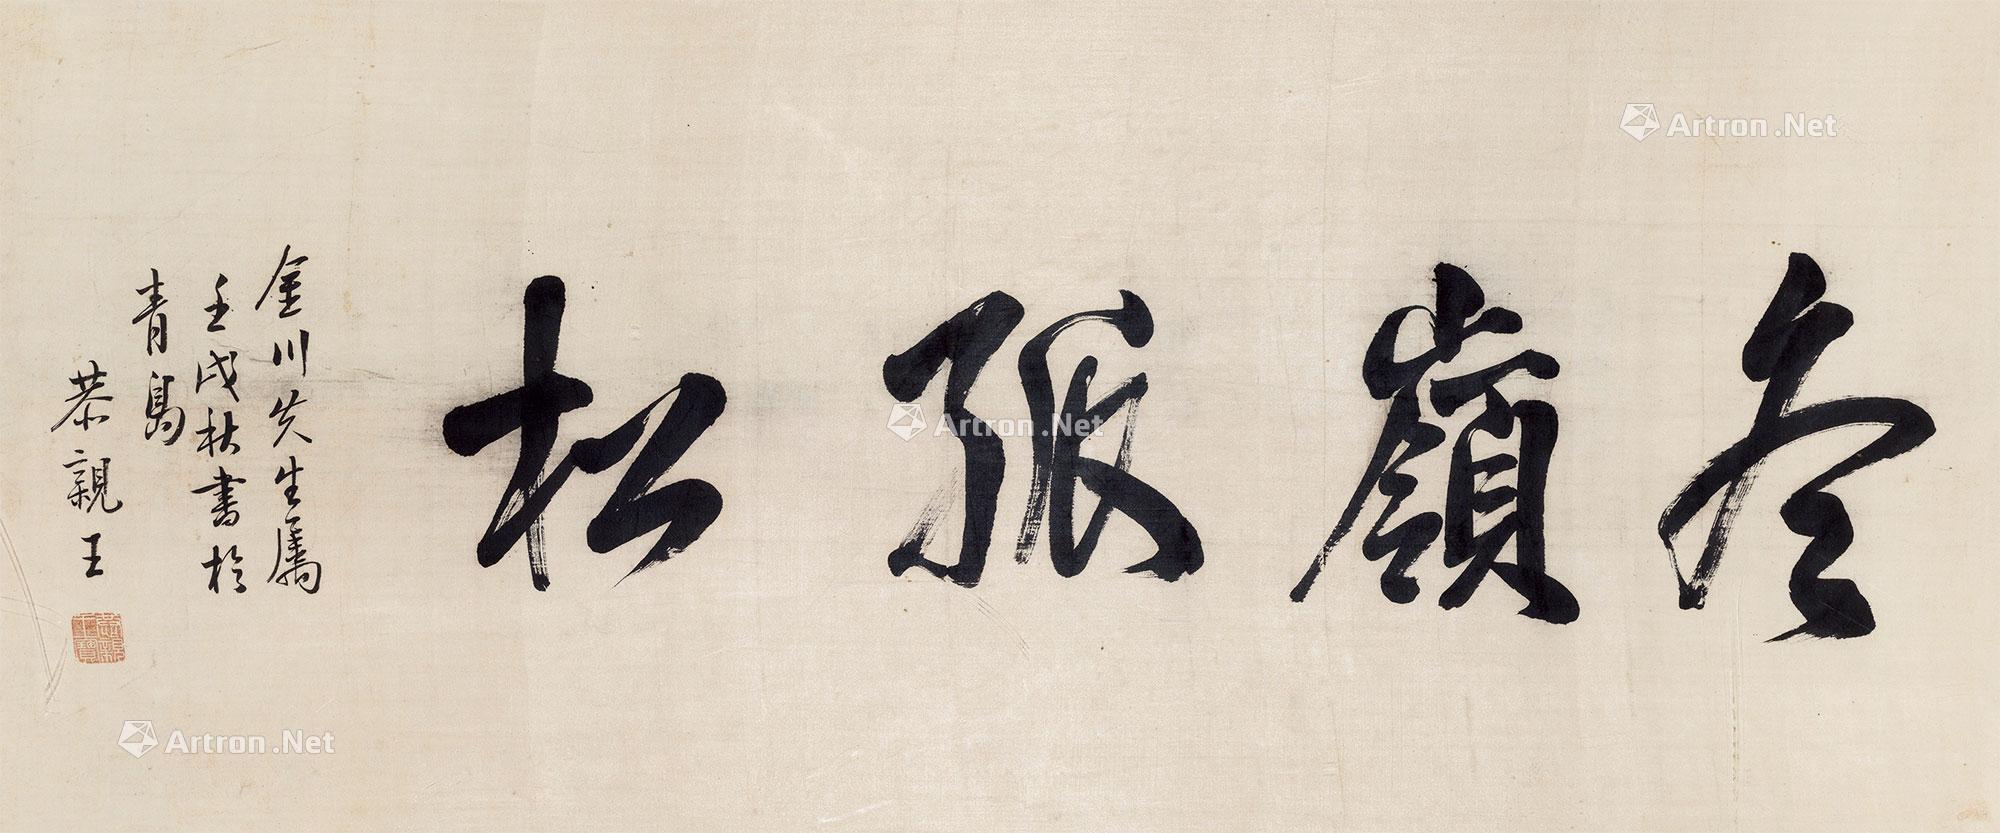 冬嶺孤松
金川先生屬
壬戌秋書於
青島
恭親王
恭親王寶
Artron.Net
Artron.Net
Artron.Net